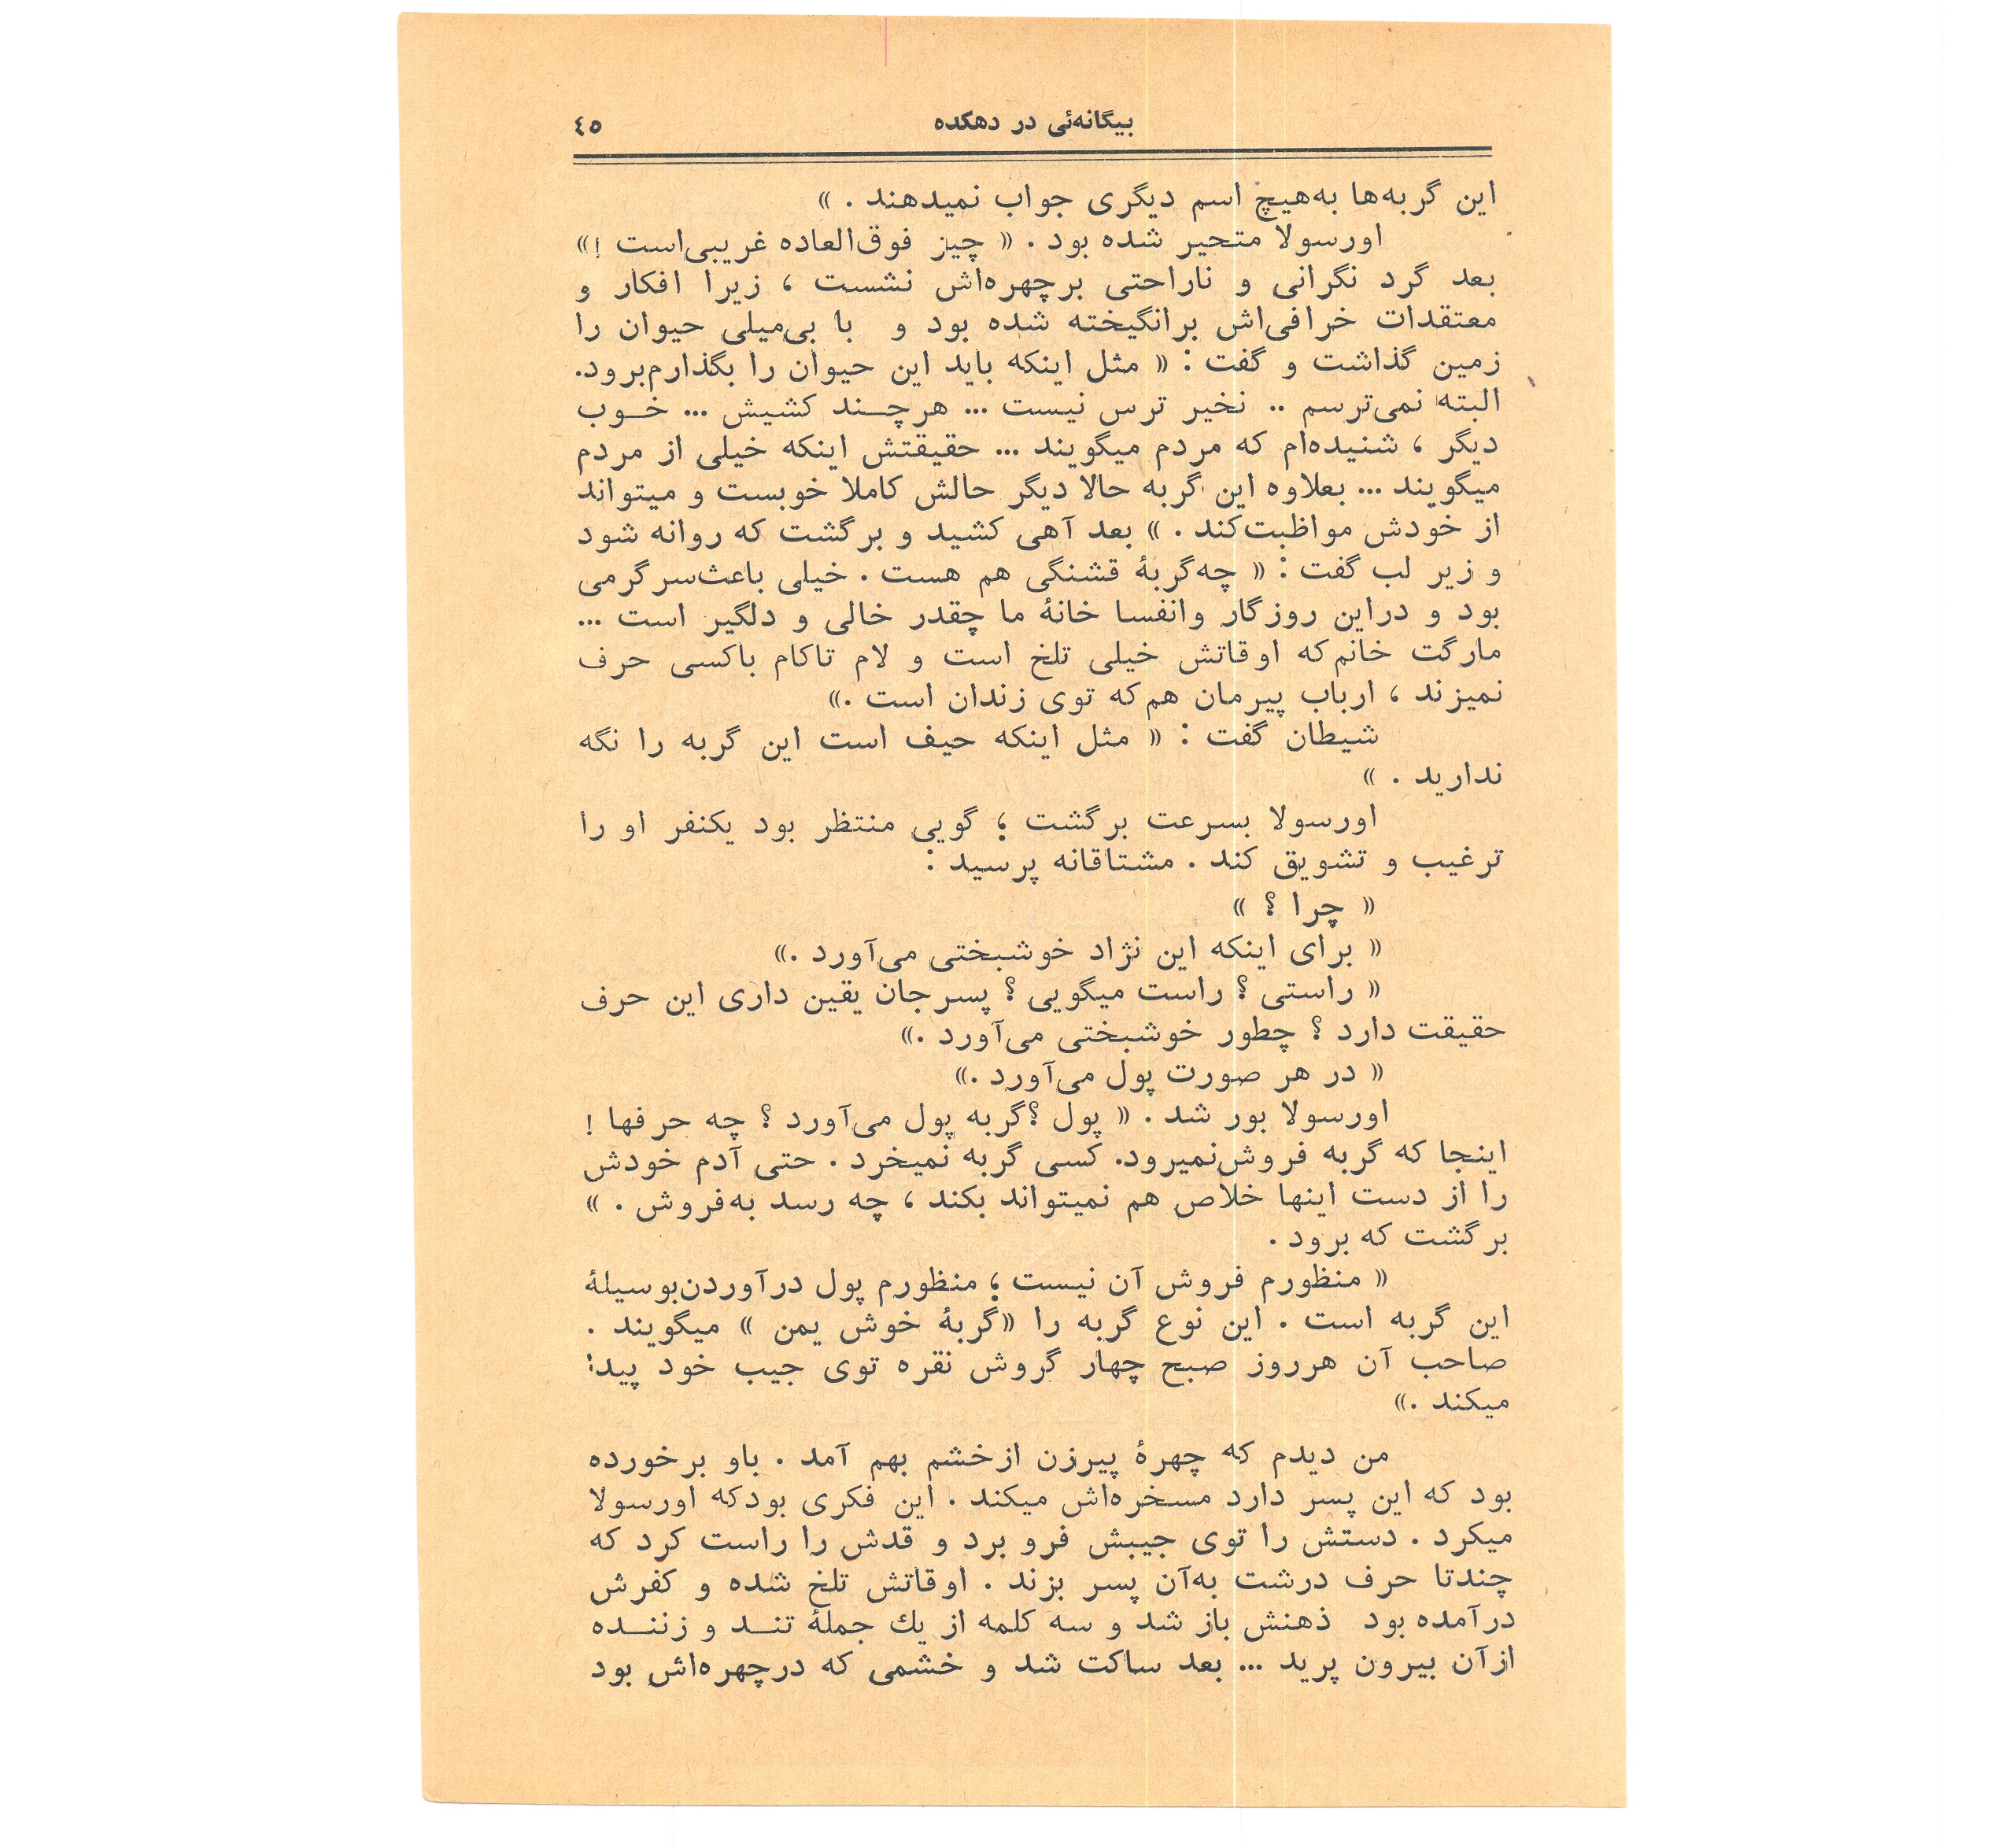 بیگانه‌ئی در دهکده ٤٥
این گربه‌ها به‌هیچ اسم دیگری جواب نمیدهند . »
اورسولا متحیر شده بود . « چیز فوق‌العاده غریبی‌است !»
بعد گرد نگرانی و ناراحتی برچهره‌اش نشست ، زیرا افکار و
معتقدات خرافی‌اش برانگیخته شده بود و با بی‌میلی حیوان را
زمین گذاشت و گفت : « مثل اینکه باید این حیوان را بگذارم‌برود.
البته نمی‌ترسم .. نخیر ترس نیست ... هرچـند کشیش ... خـوب
دیگر ، شنیده‌ام که مردم میگویند ... حقیقتش اینکه خیلی از مردم
میگویند ... بعلاوه این گربه حالا دیگر حالش کاملا خوبست و میتواند
از خودش مواظبت‌کند . » بعد آهی کشید و برگشت که روانه شود
و زیر لب گفت : « چه‌گربهٔ قشنگی هم هست . خیلی باعث‌سرگرمی
بود و دراین روزگار وانفسا خانهٔ ما چقدر خالی و دلگیر است ...
مارگت خانم‌که اوقاتش خیلی تلخ است و لام تاکام باکسی حرف
نمیزند ، ارباب پیرمان هم‌که توی زندان است .»
شیطان گفت : « مثل اینکه حیف است این گربه را نگه
ندارید . »
اورسولا بسرعت برگشت ؛ گویی منتظر بود یکنفر او را
ترغیب و تشویق کند . مشتاقانه پرسید :
« چرا ؟ »
« برای اینکه این نژاد خوشبختی می‌آورد .»
« راستی ؟ راست میگویی ؟ پسرجان یقین داری این حرف
حقیقت دارد ؟ چطور خوشبختی می‌آورد .»
« در هر صورت پول می‌آورد .»
اورسولا بور شد . « پول ؟گربه پول می‌آورد ؟ چه حرفها !
اینجا که گربه فروش‌نمیرود. کسی گربه نمیخرد . حتی آدم خودش
را از دست اینها خلاص هم نمیتواند بکند ، چه رسد به‌فروش . »
برگشت که برود .
« منظورم فروش آن نیست ؛ منظورم پول درآوردن‌بوسیلهٔ
این گربه است . این نوع گربه را «گربهٔ خوش یمن » میگویند .
صاحب آن هرروز صبح چهار گروش نقره توی جیب خود پیدا
میکند .»
من دیدم که چهرهٔ پیرزن ازخشم بهم آمد . باو برخورده
بود که این پسر دارد مسخره‌اش میکند . این فکری بودکه اورسولا
میکرد . دستش را توی جیبش فرو برد و قدش را راست کرد که
چندتا حرف درشت به‌آن پسر بزند . اوقاتش تلخ شده و کفرش
درآمده بود ذهنش باز شد و سه کلمه از یك جملهٔ تنـد و زننـده
ازآن بیرون پرید ... بعد ساکت شد و خشمی که درچهره‌اش بود